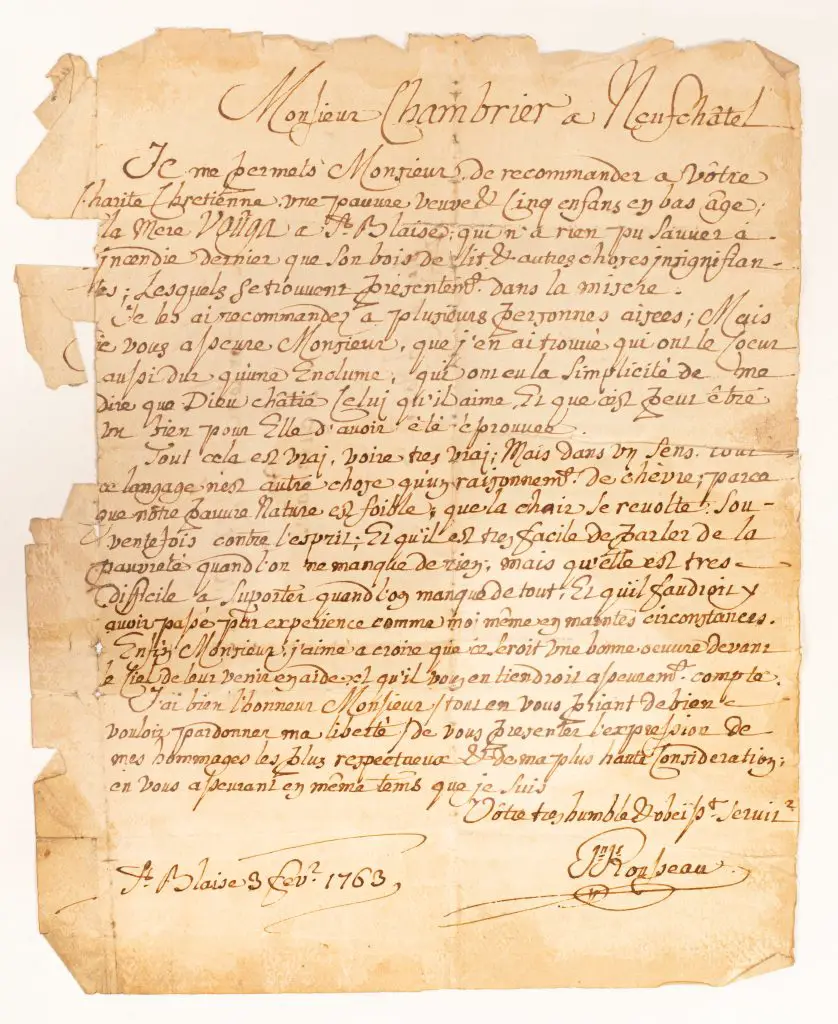 Monsieur Chambrier a Neufchâtel
Je me permets Monsieur de recommander a Vôtre
Charite Chretienne une pauvre veuve & Cinq enfans en bas âge;
la Mere VOUGA a St. Blaise; qui n'a rien pu sauver à
incendie dernier que son bois de lit & autres choses insignifian-
tes; Lesquels se trouvent presentemt. dans la misere.
Je les ai recommandez à plusieurs personnes aisées; Mais
je vous asseure Monsieur, que j'en ai trouvé qui ont le Coeur
aussi dur qu'une Enclume, qui ont eu la simplicité de me
dire que Dieu châtie Celuj qu'il aime, Et que c'est peut être
un bien pour Elle d'avoir été éprouvée.
Tout cela est vraj, voire tres vraj; Mais dans un Sens tout
ce langage n'est autre chose qu'un raisonnemt. de chèvre; parce
que nôtre pauvre Nature est foible, que la chair se revolte Sou-
ventefois contre l'esprit; Et qu'il est tres facile de parler de la
pauvreté quand l'on ne manque de rien, mais qu'elle est tres
difficile a suporter quand l'on manque de tout, Et qu'il faudroit y
avoir passé par experience comme moi même en maintes circonstances.
Enfin Monsieur, j'aime a croire que ce seroit une bonne oeuvre devant
le Ciel de leur venir en aide & qu'il vous en tiendroit asseuremt. compte.
J'ai bien l'honneur Monsieur / tout en vous priant de bien
vouloir pardonner ma liberté / de vous presenter l'expression de
mes hommages les plus respectueux & de ma plus haute Consideration;
en vous asseurant en même tems que je suis
Vôtre tres humble & obeisst. servitr.
St. Blaise 3 Fevr. 1763,
Rousseau